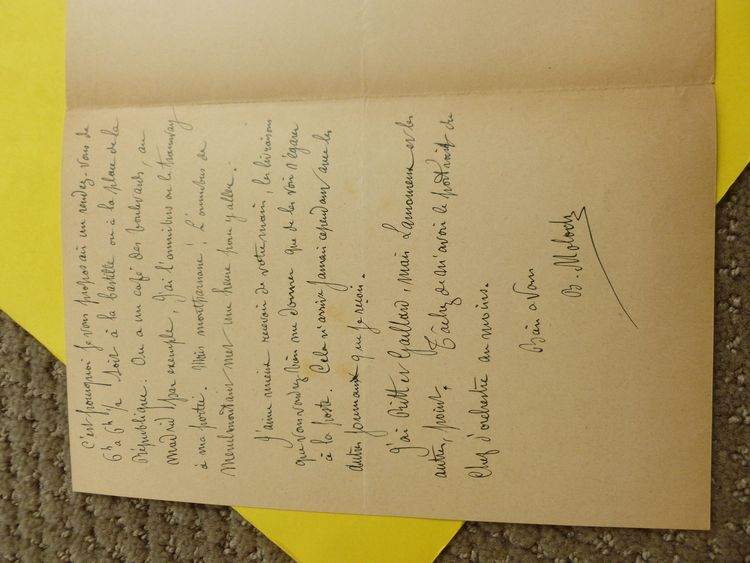 C'est pourquoi je vous proposais un rendez-vous de
6h à 6h 1/2 soit à la bastille ou à la place de la
République. Ou a un café des boulevards, au
Madrid par exemple, j'ai l'omnibus ou le tramway
à ma porte. Mais montparnasse! L'omnibus de
Menilmontant met une heure pour y aller.
J'aime mieux recevoir de votre main, les livraisons
que vous voudrez bien me donner que de les voir s'égarer
à la poste. Cela n'arrive jamais cependant avec les
autres journaux que je reçois.
J'ai et Gaillard, mais Lamoureux et les
autres, point. Tâchez de m'avoir le portrait du
Chef d'orchestre au moins.
Bien a Vous
B. Moloch